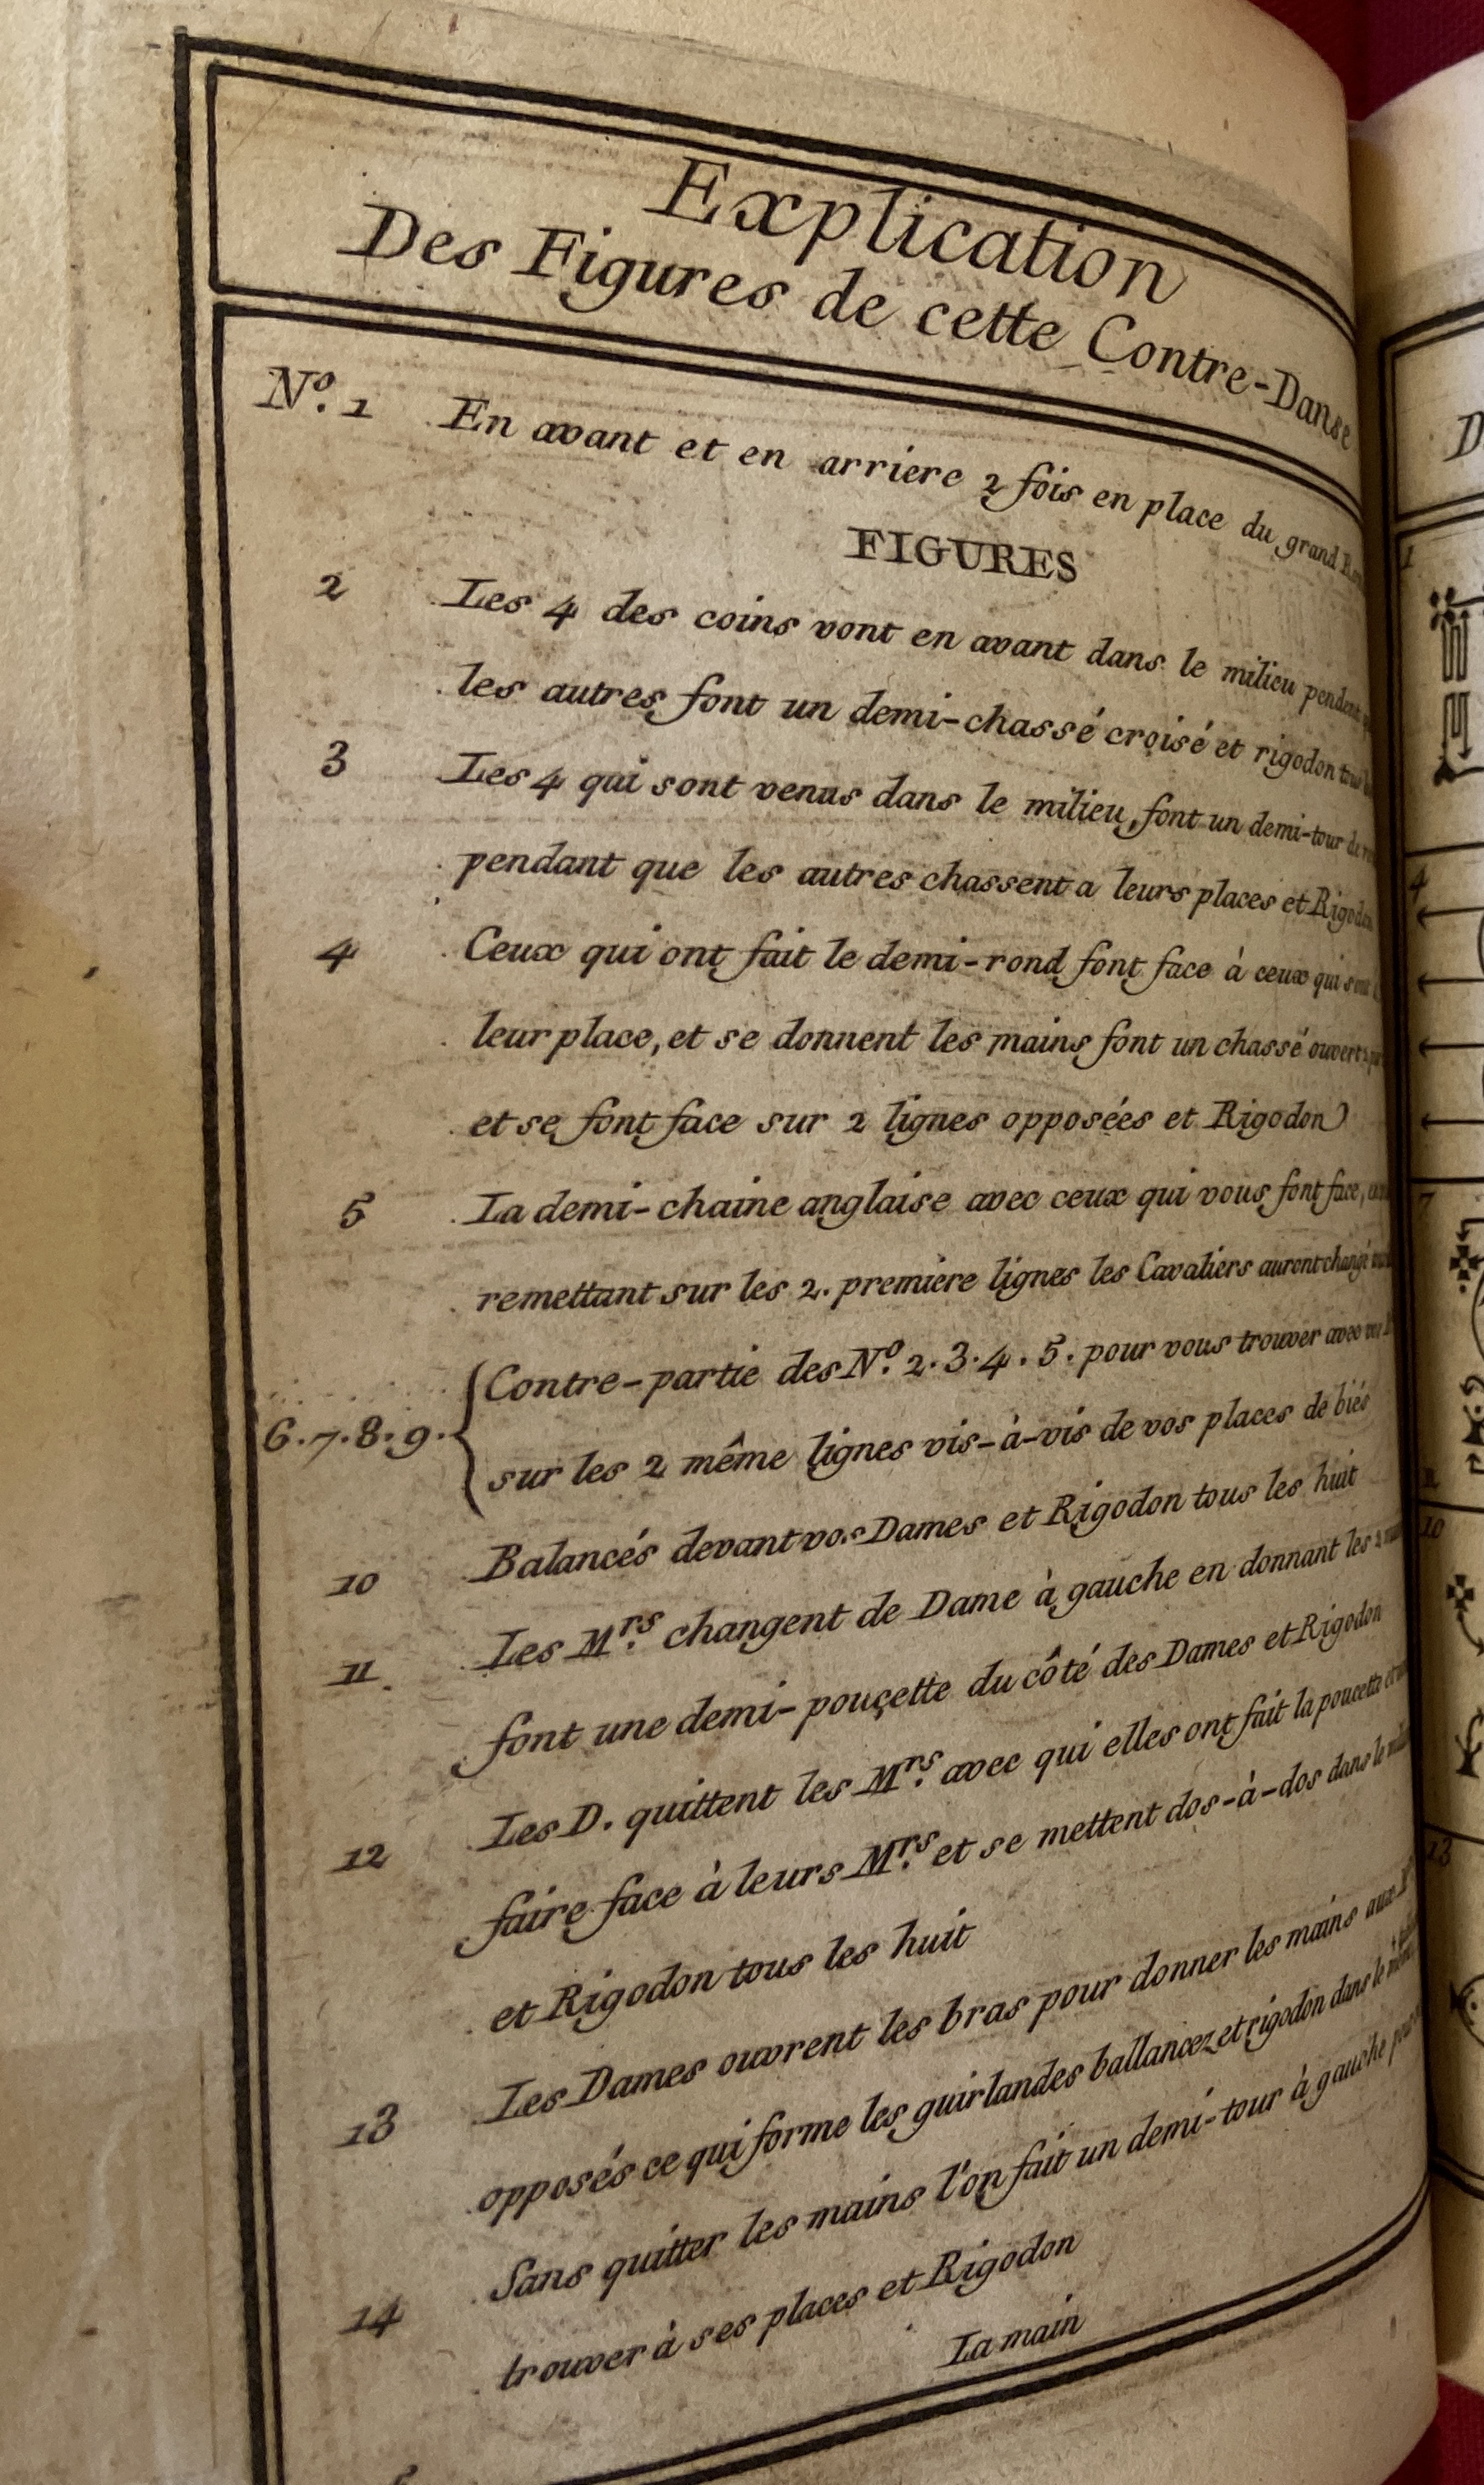 Explication
Des Figures de cette Contre-Danse
No. 1 En avant et en arriere 2 fois en place du grand
FIGURES
2 Les 4 des coins vont en avant dans le milieu pendent
les autres font un demi-chassé croisé et rigodon
3 Les 4 qui sont venus dans le milieu, font un demi-tour de
pendant que les autres chassent a leurs places et Rigodon
4 Ceux qui ont fait le demi-rond font face à ceux qui sont
leur place, et se donnent les mains font un chassé ouvert
et se font face sur 2 lignes opposées et Rigodon
5 La demi-chaine anglaise avec ceux qui vous font face,
remettant sur les 2. premiere lignes les Cavaliers auront changé
6.7.8.9. Contre-partie des No. 2.3.4.5. pour vous trouver avec
sur les 2 même lignes vis-à-vis de vos places de biés
10 Balancés devant vos Dames et Rigodon tous les huit
11. Les Mrs. changent de Dame à gauche en donnant les 2
font une demi-pouçette du côté des Dames et Rigodon
12 Les D. quittent les Mrs. avec qui elles ont fait la poucette
faire face à leurs Mrs. et se mettent dos-à-dos dans le
et Rigodon tous les huit
13 Les Dames ouvrent les bras pour donner les mains aux
opposés ce qui forme les guirlandes ballancez et rigodon dans le
14 Sans quitter les mains l'on fait un demi-tour à gauche
trouver à ses places et Rigodon
La main
D
1
4
7
10
13